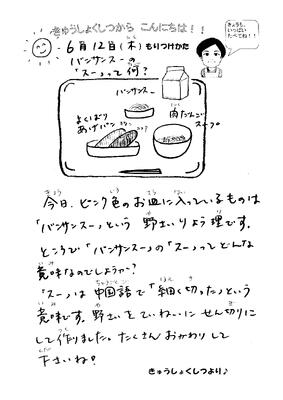 きゅうしょくしつから こんにちは！！
きょうも、
いっぱい
たべてね！！
6月12日(木)もりつけかた
バンサンスーの
「スー」って何？
バンサンスー
よくばり
あげパン
肉だんご
スープ
今日、ピンク色のお皿に入っているものは
「バンサンスー」という 野さいりょう理です。
ところで「バンサンスー」の「スー」ってどんな
意味なのでしょうか？
「スー」は 中国語で「細く切った」という
意味です。野さいをていねいに せん切りに
して作りました。たくさん おかわりして
下さいね！
きゅうしょくしつより♪